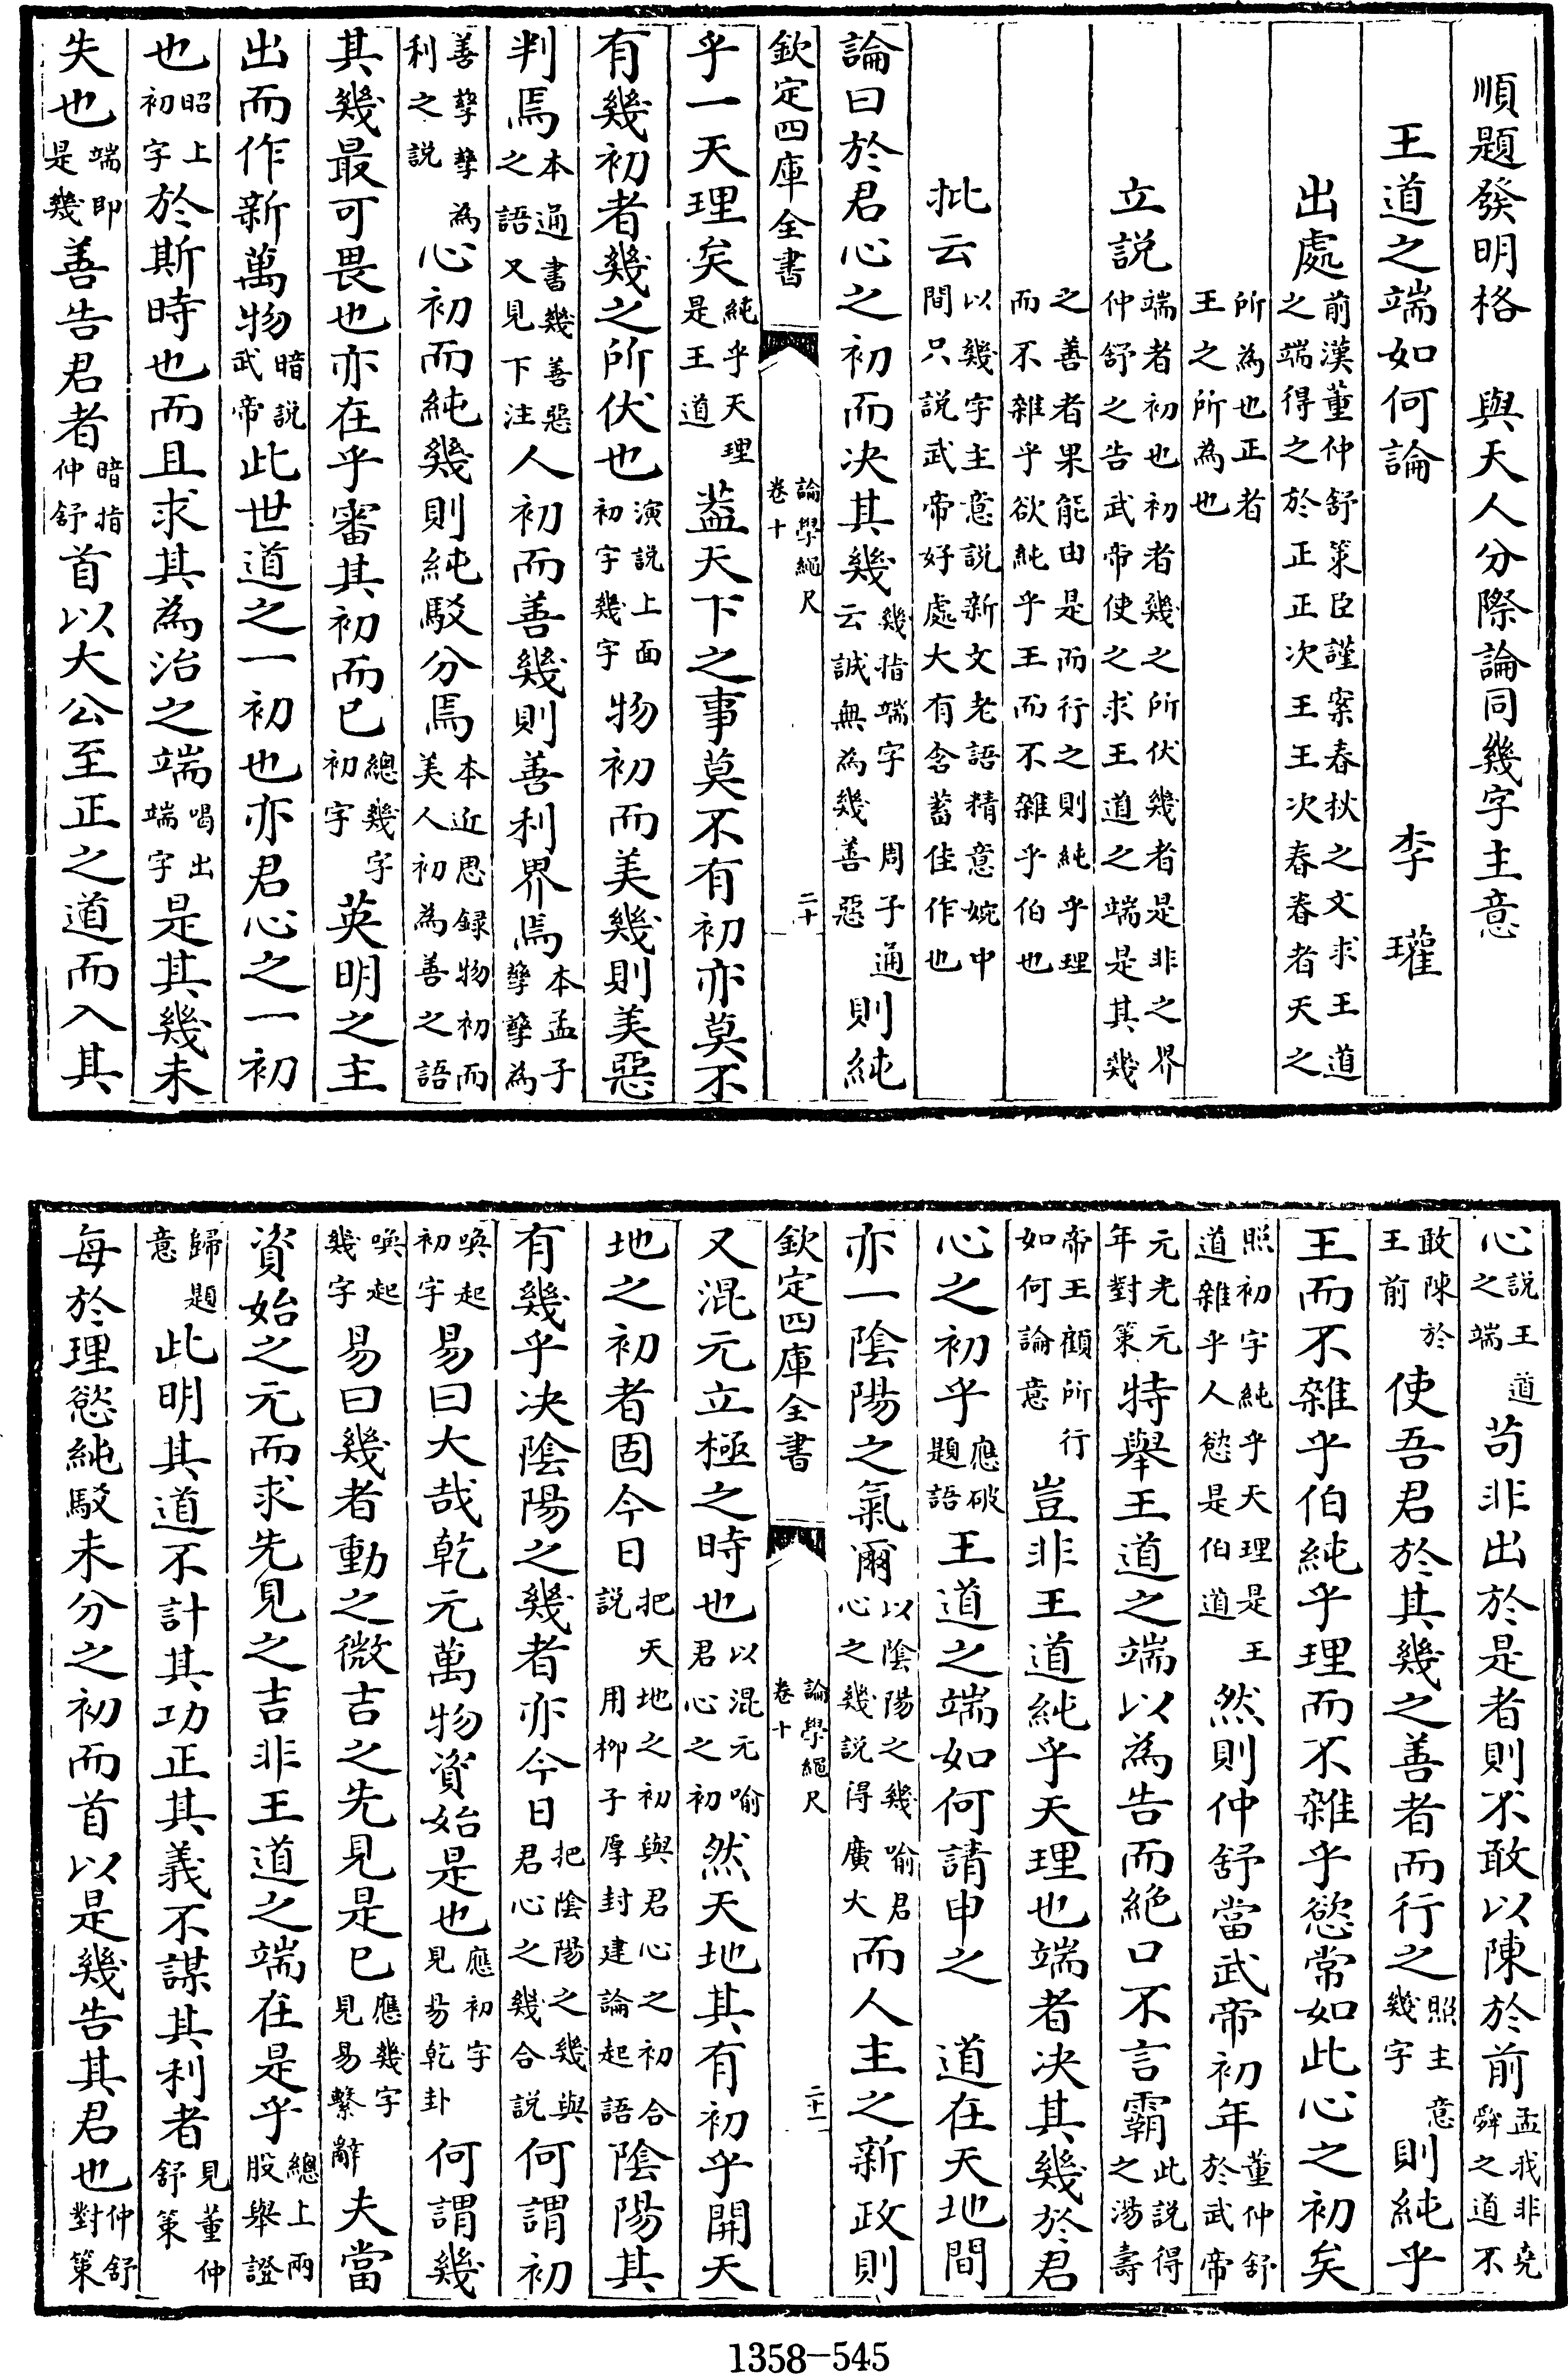 順題發明格　與天人分際論同幾字主意
王道之端如何論　李　瓘
出處前漢董仲舒策臣謹案春秋之文求王道之端得之於正正次王王次春春者天之
所為也正者王之所為也
立説端者初也初者幾之所伏幾者是非之界仲舒之告武帝使之求王道之端是其幾
之善者果能由是而行之則純乎理而不雜乎欲純乎王而不雜乎伯也
批云以幾字主意説新文老語精意婉中間只説武帝好處大有含蓄佳作也
論曰於君心之初而决其幾幾指端字　周子通云誠無為幾善惡則純
欽定四庫全書
論學繩尺
卷十
二十
乎一天理矣純乎天理是王道葢天下之事莫不有初亦莫不
有幾初者幾之所伏也演説上面初字幾字物初而美幾則美惡
判焉本通書幾善惡之語又見下注人初而善幾則善利界焉本孟子孳孳為
善孳孳為利之説心初而純幾則純駁分焉本近思録物初而美人初為善之語
其幾最可畏也亦在乎審其初而已總幾字初字英明之主
出而作新萬物暗説武帝此世道之一初也亦君心之一初
也昭上初字於斯時也而且求其為治之端喝出端字是其幾未
失也端即是幾善告君者暗指仲舒首以大公至正之道而入其
心説王道之端苟非出於是者則不敢以陳於前孟我非堯舜之道不
敢陳於王前使吾君於其幾之善者而行之照主意幾字則純乎
王而不雜乎伯純乎理而不雜乎慾常如此心之初矣
照初字純乎天理是王道雜乎人慾是伯道然則仲舒當武帝初年董仲舒於武帝
元光元年對策特舉王道之端以為告而絶口不言霸此説得之湯壽
帝王顧所行如何論意豈非王道純乎天理也端者决其幾於君
心之初乎應破題語王道之端如何請申之　道在天地間
亦一陰陽之氣爾以陰陽之幾喻君心之幾説得廣大而人主之新政則
欽定四庫全書
論學繩尺
卷十
二十一
又混元立極之時也以混元喻君心之初然天地其有初乎開天
地之初者固今日把天地之初與君心之初合説　用柳子厚封建論起語陰陽其
有幾乎决陰陽之幾者亦今日把陰陽之幾與君心之幾合説何謂初
喚起初字易曰大哉乾元萬物資始是也應初字見易乾卦何謂幾
喚起幾字易曰幾者動之微吉之先見是已應幾字見易繫辭夫當
資始之元而求先見之吉非王道之端在是乎總上兩股舉證
歸題意此明其道不計其功正其義不謀其利者見董仲舒策
每於理慾純駁未分之初而首以是幾告其君也仲舒對策
1358-545